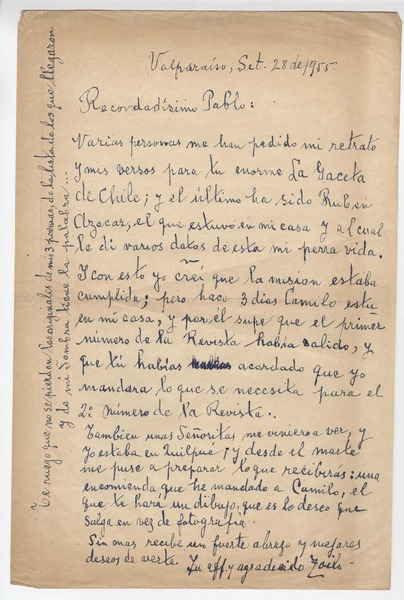 Valparaíso, Set. 28 de 1955
Recordadísimo Pablo:
Varias personas me han pedido mi retrato
y mis versos para tu enorme La Gaceta
de Chile; y el último ha sido Rubén
Azocar, el que estuvo en mi casa y al cual
le di varios datos de esta mi perra vida.
Y con esto yo creí que la misión estaba
cumplida; pero hace 3 días Camilo está
en mi casa, y por él supe que el primer
número de la Revista había salido, y
que tú habías acordado que yo
mandara lo que se necesita para el
2º número de la Revista.
Tambien unas Señoritas me vinieron a ver, y
yo estaba en Quilpué; y desde el martes
me puse a preparar lo que recibirás: una
encomienda que he mandado a Camilo, el
que te hará un dibujo, que es lo deseo que
salga en vez de fotografía.
Sin mas recibe un fuerte abrazo y mejores
deseos de verte. Tu aff. y agradecido Zoilo
Te ruego que no se pierdan los originales de mis 3 poemas, de la lista de los que llegaron
y de mi Sombra tiene la palabra...